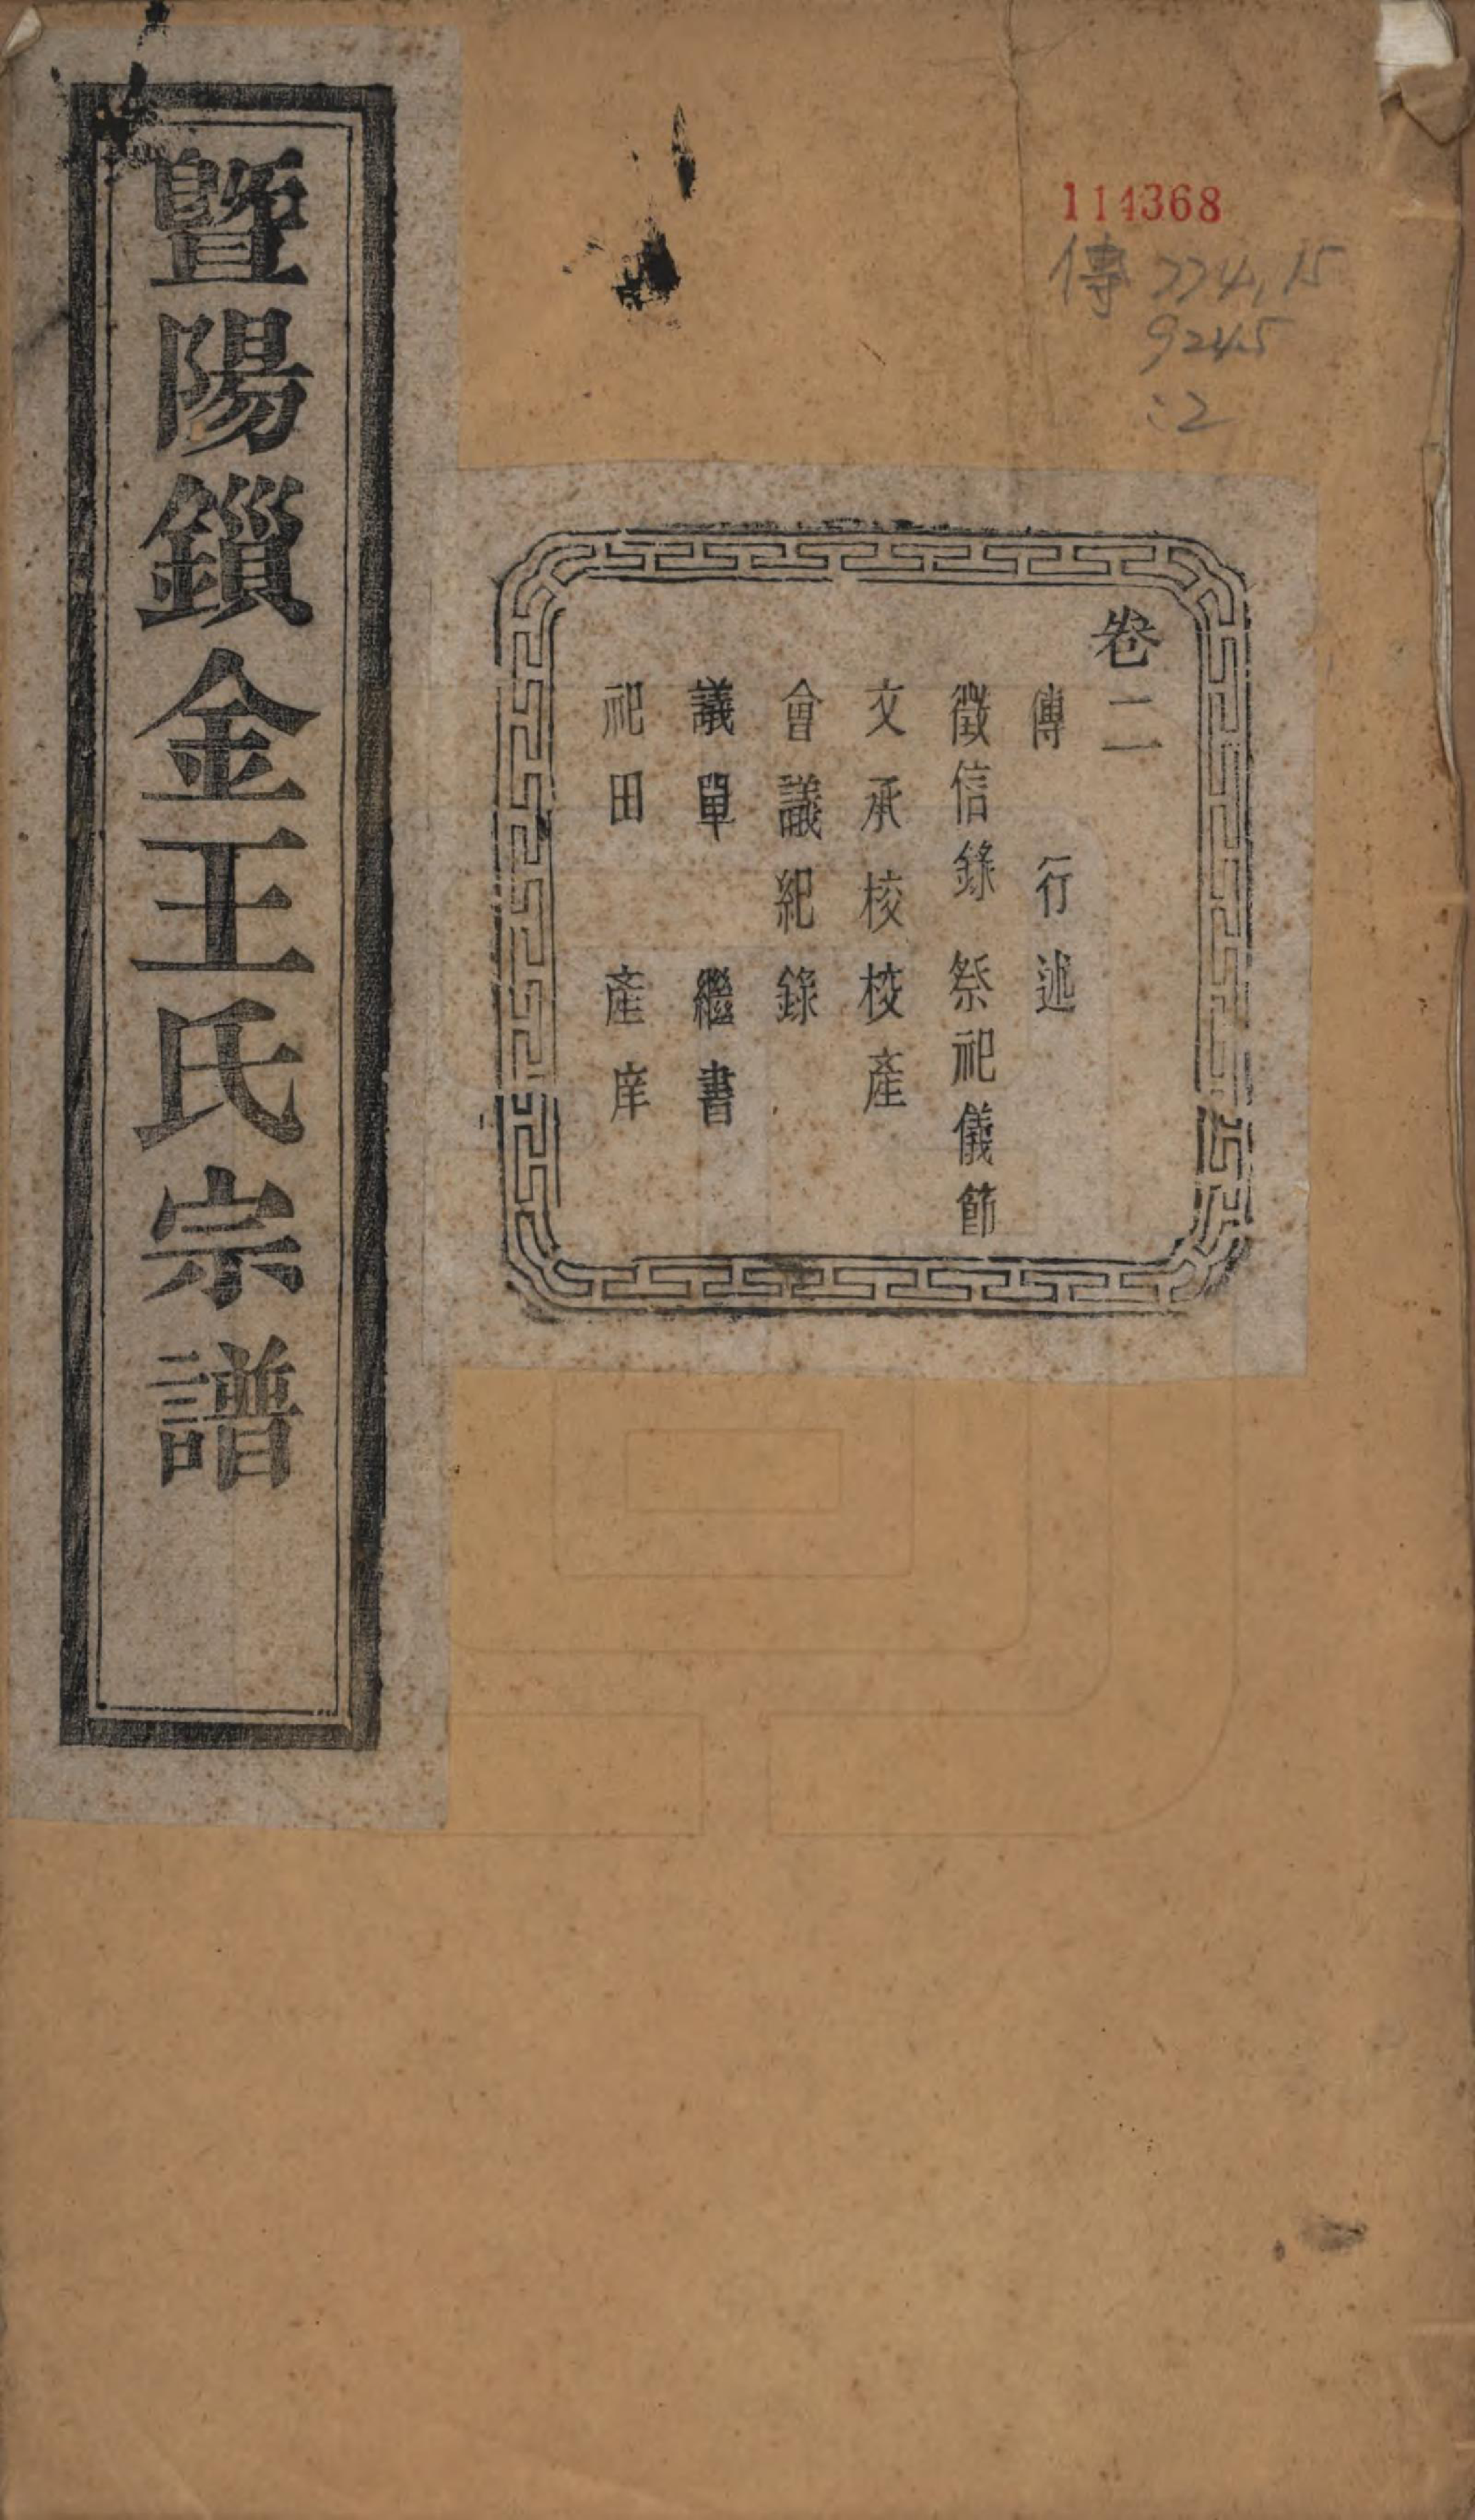 114368
傳 774.15
9245
:2
卷二
傳　行述
徵信錄　祭祀儀節
文承校校產
會議紀錄
議單　繼書
祀田　產庠
暨陽鎻金王氏宗譜